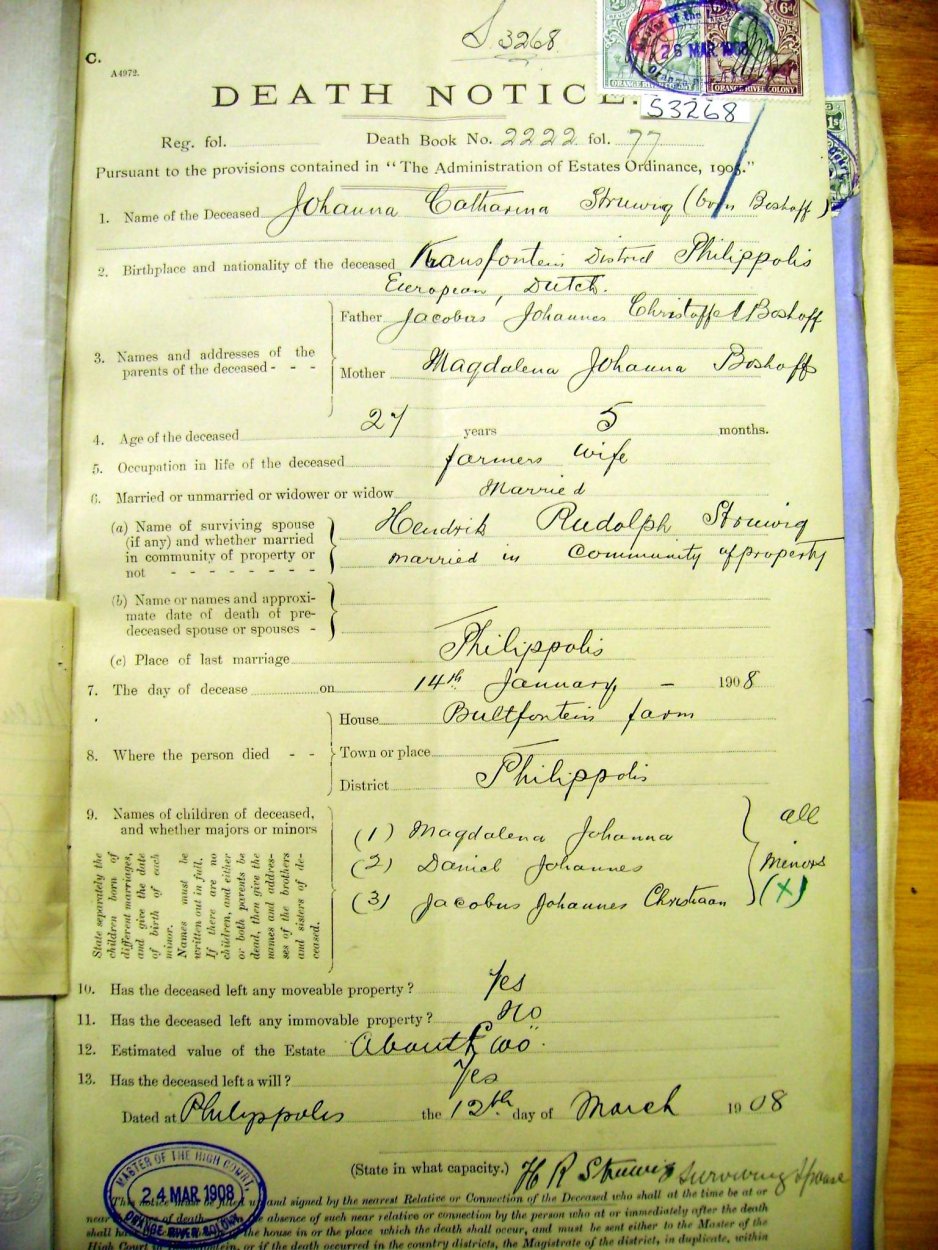 S 3268.
C.
A4972.
26 MAR 1908
ORANGE RIVER COLONY
ORANGE RIVER COLONY
6d
1s
DEATH NOTICE.
S3268
Reg. fol. Death Book No. 2222 fol. 77
Pursuant to the provisions contained in "The Administration of Estates Ordinance, 1905."
1. Name of the Deceased Johanna Catharina Struwig (born Boshoff)
2. Birthplace and nationality of the deceased Kransfontein District Philippolis
European, Dutch.
3. Names and addresses of the parents of the deceased - - -
Father Jacobus Johannes Christoffel Boshoff
Mother Magdalena Johanna Boshoff
4. Age of the deceased 27 years 5 months.
5. Occupation in life of the deceased farmers wife
6. Married or unmarried or widower or widow Married
(a) Name of surviving spouse Hendrik Rudolph Struwig
(if any) and whether married
in community of property or married in Community of property
not - - - - - - -
(b) Name or names and approxi-
mate date of death of pre-
deceased spouse or spouses -
(c) Place of last marriage Philippolis
7. The day of decease on 14th January - 1908
8. Where the person died - -
House Bultfontein farm
Town or place
District Philippolis
9. Names of children of deceased,
and whether majors or minors
State separately the
children born of
different marriages,
and give the date
of birth of each
minor.
Names must be
written out in full.
If there are no
children, and either
or both parents be
dead, then give the
names and addres-
ses of the brothers
and sisters of de-
ceased.
(1) Magdalena Johanna
(2) Daniel Johannes
(3) Jacobus Johannes Christiaan
all
minors
(X)
10. Has the deceased left any moveable property? Yes
11. Has the deceased left any immovable property? No
12. Estimated value of the Estate About £
13. Has the deceased left a will? Yes
Dated at Philippolis the 12th day of March 1908
(State in what capacity.) H R Struwig surviving spouse
MASTER OF THE HIGH COURT
24 MAR 1908
ORANGE RIVER COLONY
This notice must be filled up and signed by the nearest Relative or Connection of the Deceased who shall at the time be at or
near place of death the absence of such near relative or connection by the person who at or immediately after the death
shall have the house in or the place which the death shall occur, and must be sent either to the Master of the
High Court or if the death occurred in the country districts, the Magistrate of the district, in duplicate, within